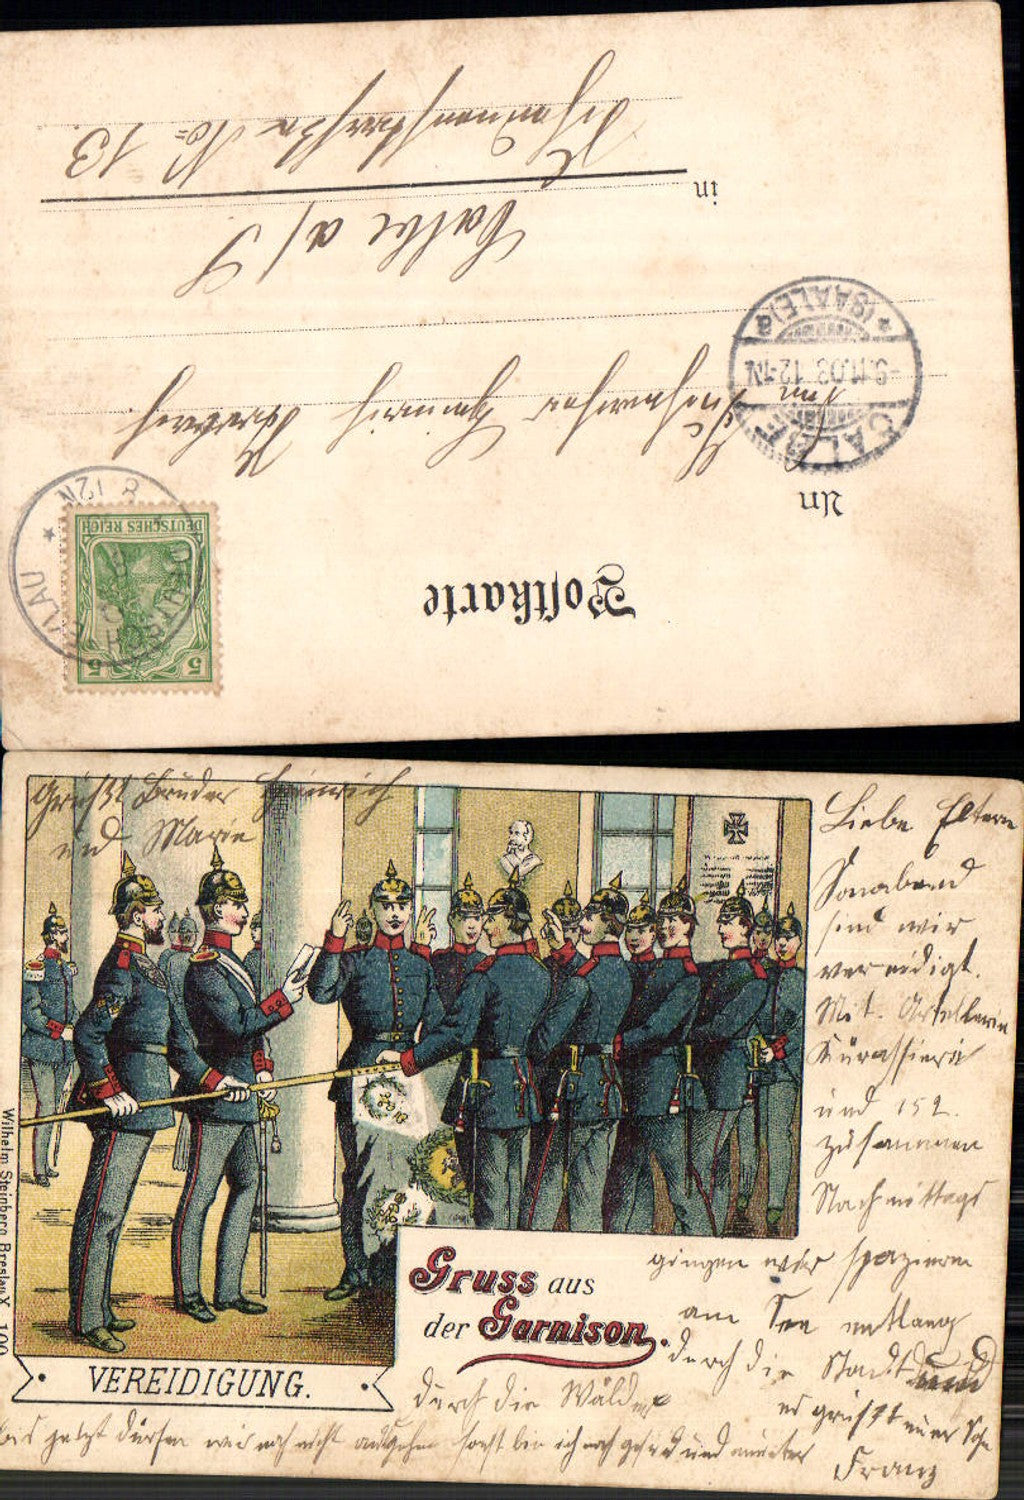 Postkarte
An
Schuhmacher Heinrich
Calbe a/S
in
No 13
DEUTSCHES REICH
5
5
DEUTSCH EYLAU
8 12N
CALBE
9.11.03. 12-1N
*(SAALE)a
Grüßt Bruder Heinrich
und Marie
Liebe Eltern
Sonabend
sind wir
vereidigt.
Mit. Artellerie
Kürassiere
und 152.
zusammen
Nachmittags
gingen wir spazieren
am See entlang
durch die Stadt und
durch die Wälder
es grüßt euer Sohn
bis jetzt dürfen wir noch nicht ausgehen sonst bin ich noch gesund und munter
Franz
Gruss aus
der Garnison.
VEREIDIGUNG.
Wilhelm Steinberg Breslau X 100